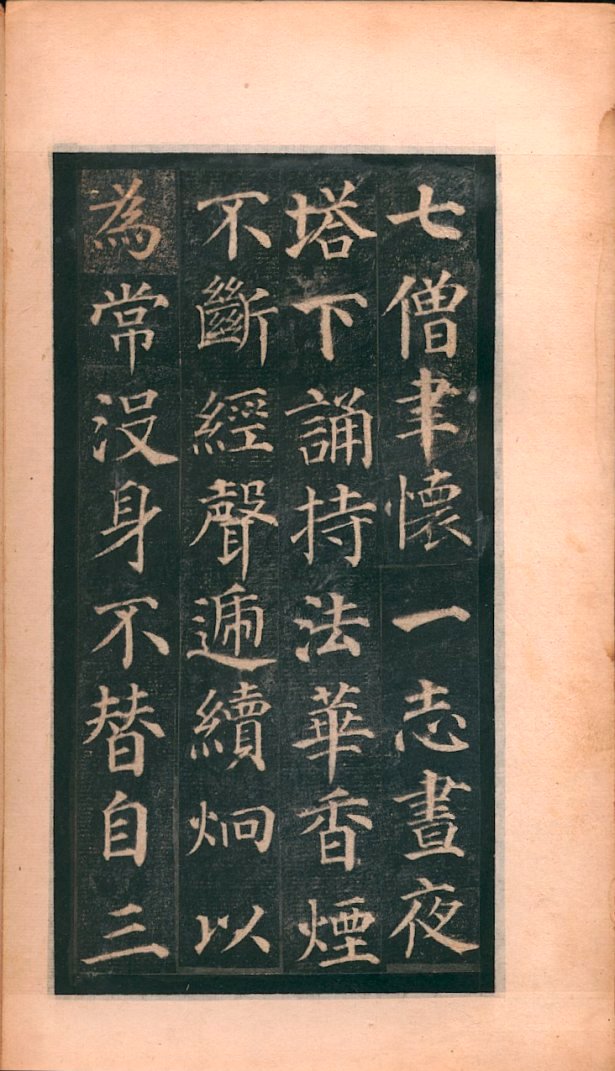 七僧聿懷一志晝夜
塔下誦持法華香煙
不斷經聲遞續炯以
為常沒身不替自三